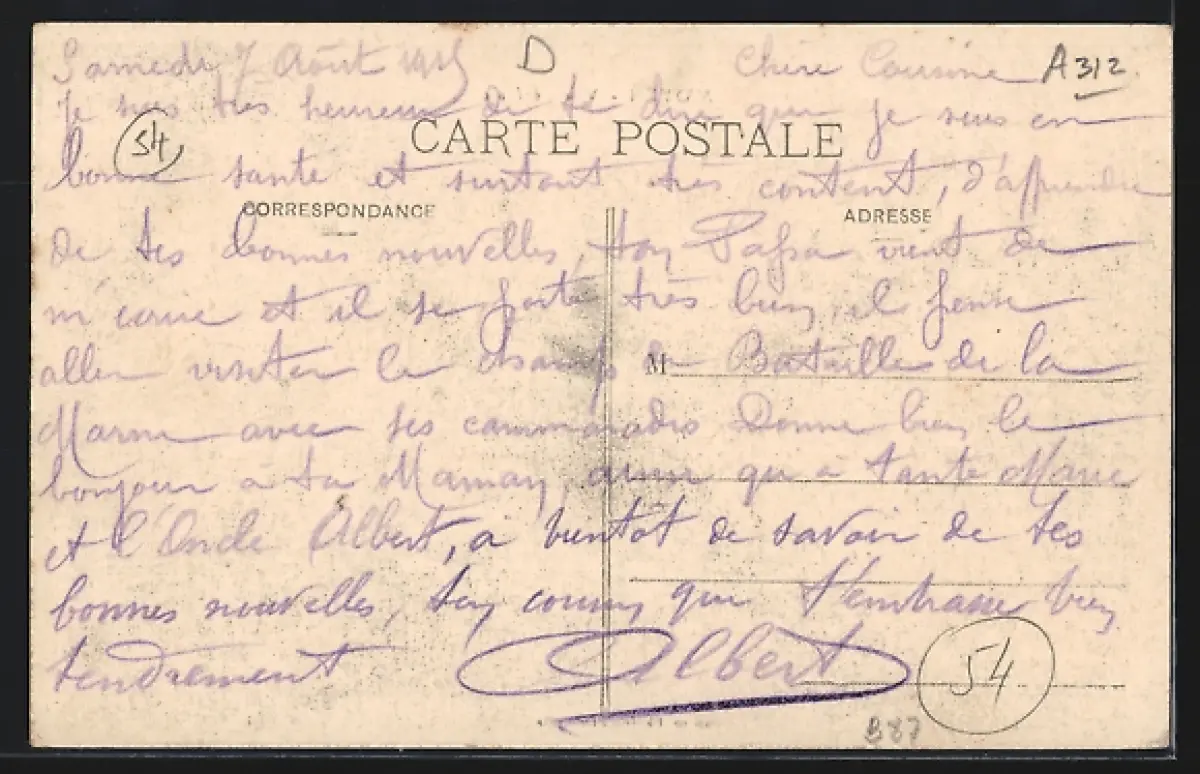 Samedi 7 Août 1915 D Chère Cousine A312
je suis très heureux de te dire que je suis en
CARTE POSTALE
54
bonne sante et surtout très content, d'apprendre
CORRESPONDANCE ADRESSE
de tes bonnes nouvelles, ton Papa vient de
m'ecrire et il se porte très bien, il pense
aller visiter le champs de Batailles de la
M
Marne avec ses cammarades Donne bien le
bonjour a ta Maman, ainsi qu'a tante Marie
et l'Oncle Albert, a bientôt de savoir de tes
bonnes nouvelles, ton cousin qui t'embrasse bien
tendrement Albert
54
B87